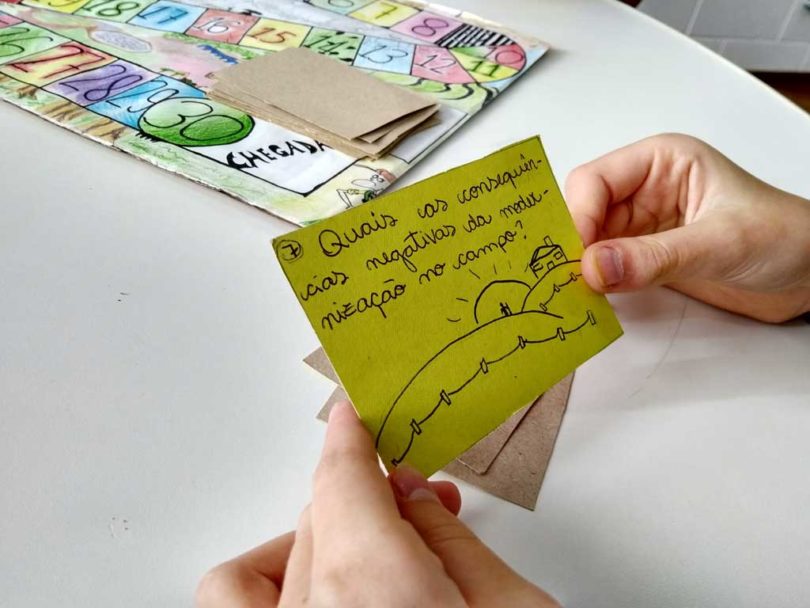 7 8
18 17 16 15 14 13 12 11 10
26 27 28 29 30
CHEGADA
7 Quais as consequên-
cias negativas da moder-
nização no campo?